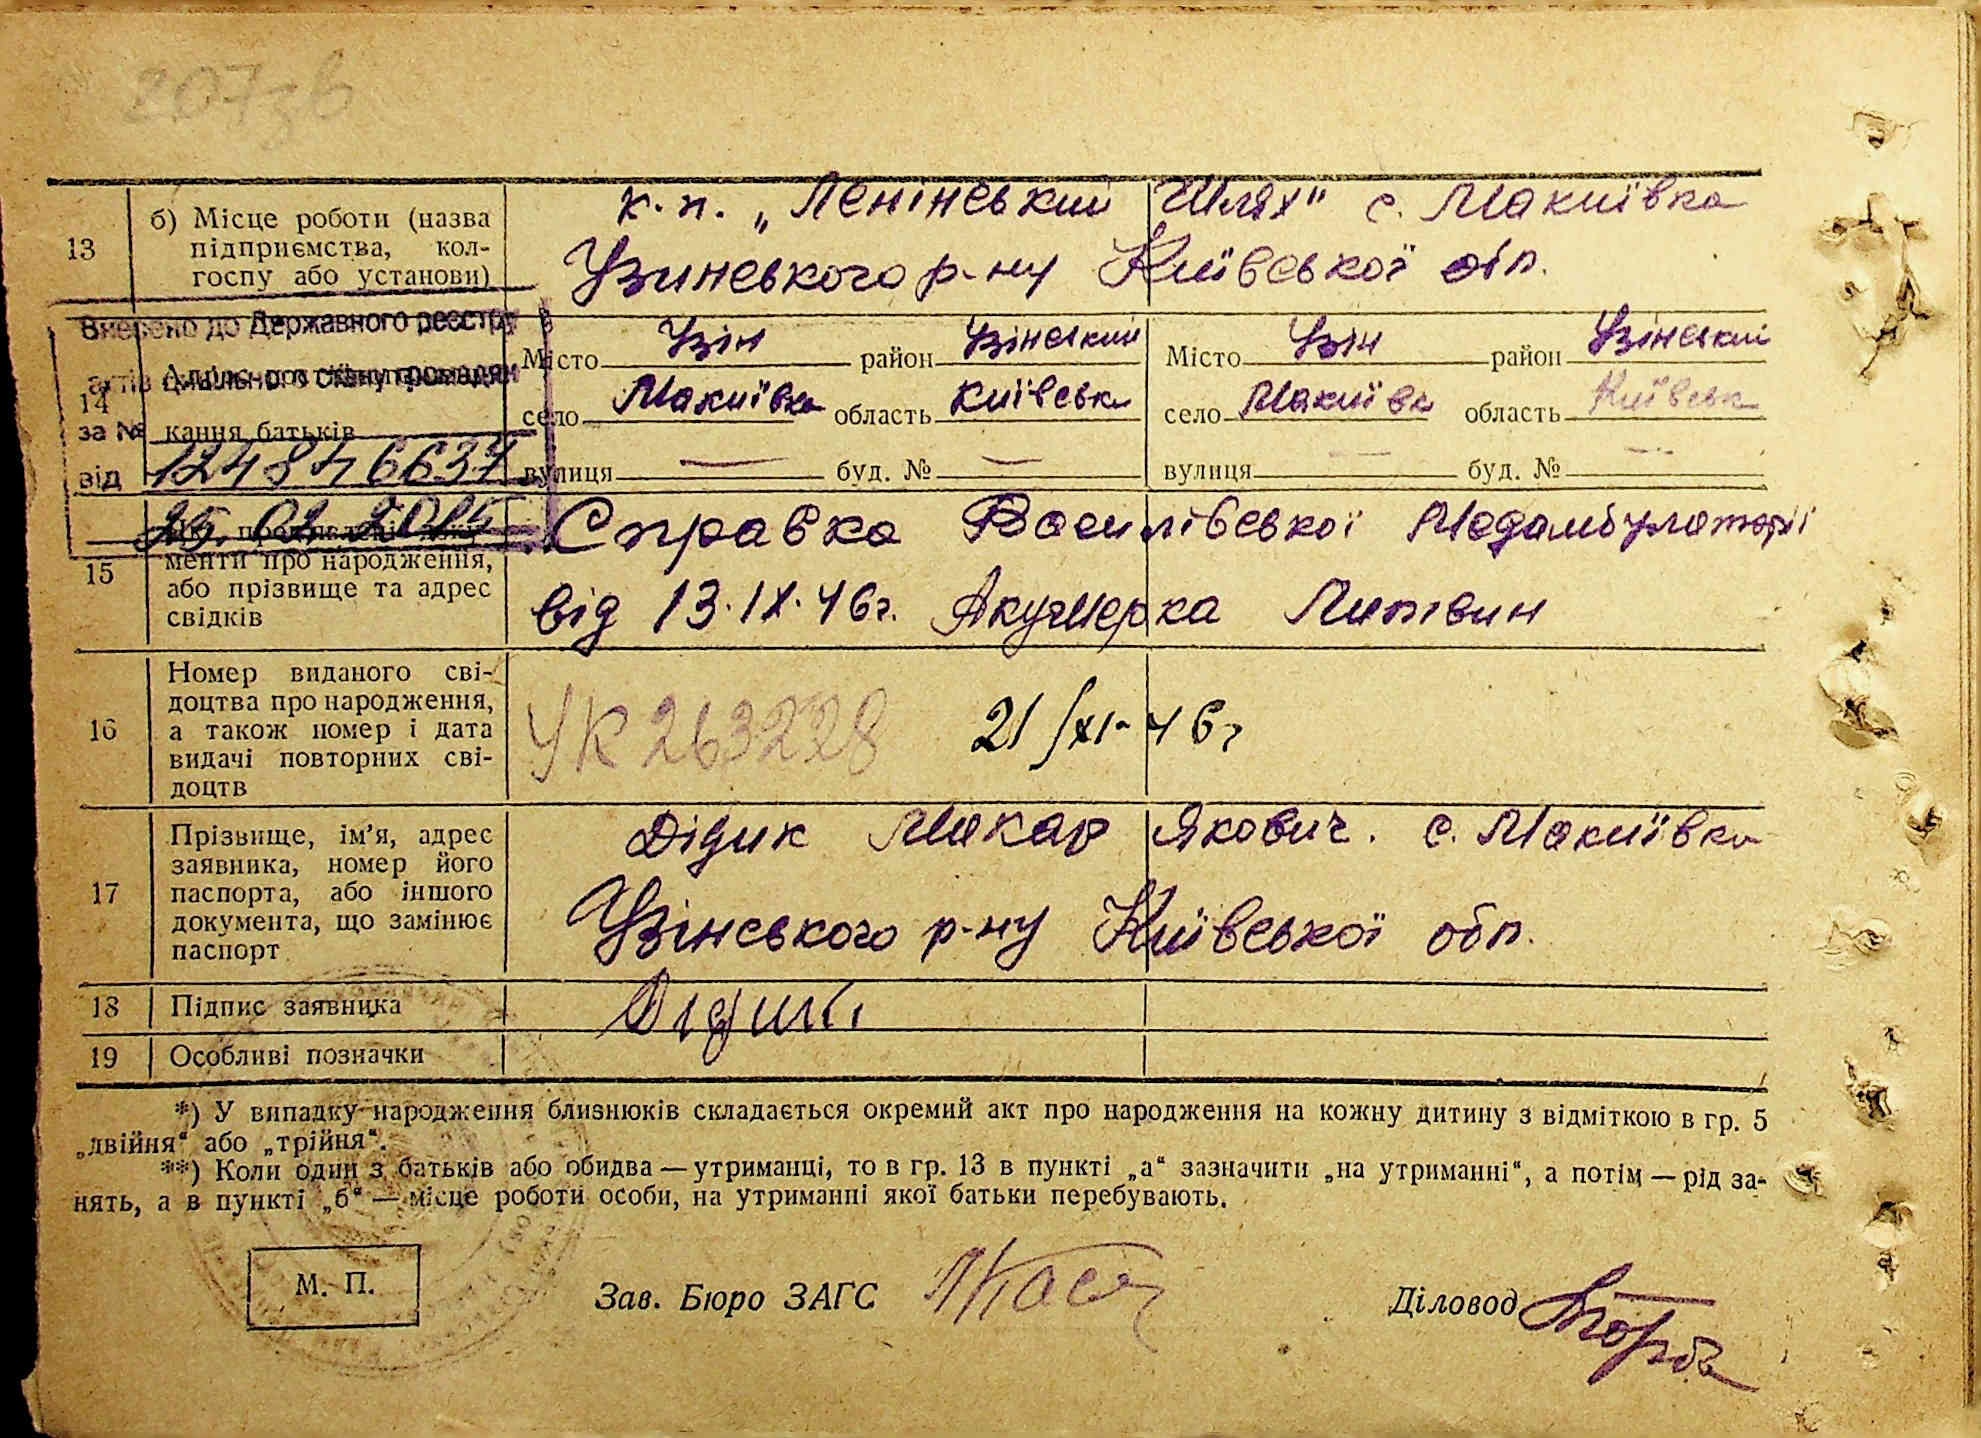 207зв
13 б) Місце роботи (назва підприємства, колгоспу або установи)
к.п. „Ленінський Шлях" с. Макиївка
Узинського р-ну Київської обл.
Внесено до Державного реєстру
актів цивільного стану громадян
за №
від 1248476637
25. 02 2015
14
кання батьків
Місто Узін район Узінський Місто Узін район Узінський
село Макиївка область Київськ село Макиївк область Київськ
вулиця — буд. № — вулиця — буд. № —
15
менти про народження,
або прізвище та адрес
свідків
Справка Василівської Медамбулаторії
від 13.IX.46г. Акушерка Литвин
16 Номер виданого сві-
доцтва про народження,
а також номер і дата
видачі повторних сві-
доцтв
УК 263228 21/XI-46г
17 Прізвище, ім'я, адрес
заявника, номер його
паспорта, або іншого
документа, що замінює
паспорт
Дідик Макар Якович. с. Макиївка
Узінського р-ну Київської обл.
18 Підпис заявника
19 Особливі позначки
*) У випадку народження близнюків складається окремий акт про народження на кожну дитину з відміткою в гр. 5
„двійня“ або „трійня“.
**) Коли один з батьків або обидва — утриманці, то в гр. 13 в пункті „а“ зазначити „на утриманні“, а потім — рід за-
нять, а в пункті „б“ — місце роботи особи, на утриманні якої батьки перебувають.
М. П. Зав. Бюро ЗАГС Діловод